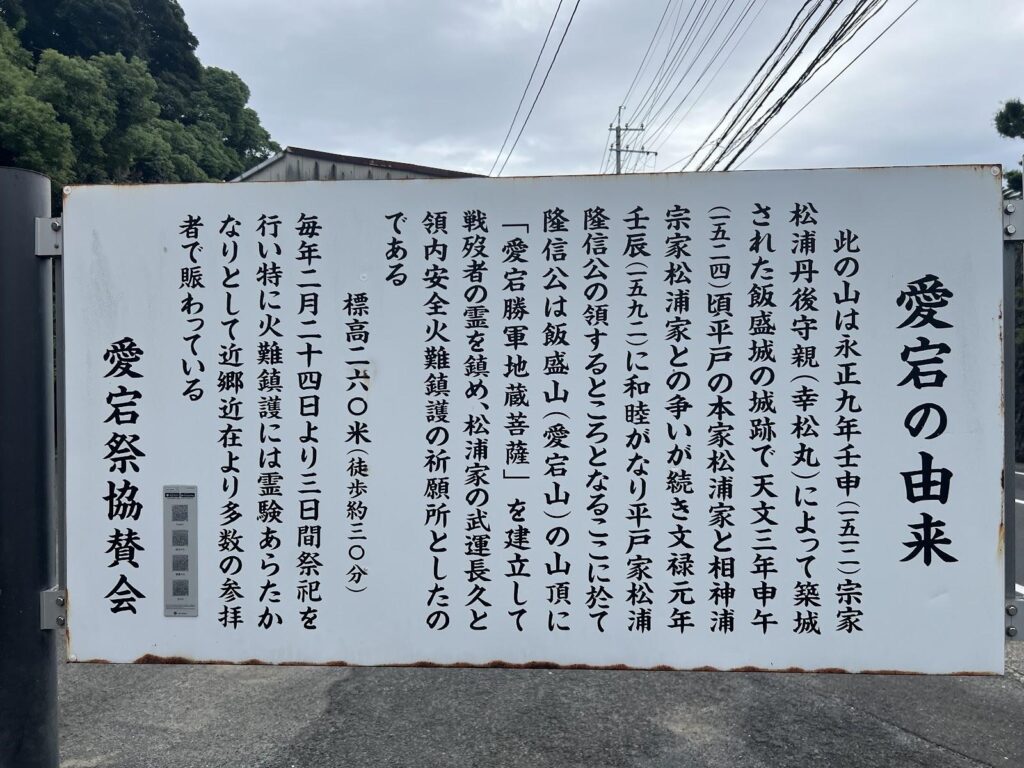 愛宕の由来
此の山は永正九年壬申(一五一二)宗家
松浦丹後守親(幸松丸)によって築城
された飯盛城の城跡で天文三年申午
(一五二四)頃平戸の本家松浦家と相神浦
宗家松浦家との争いが続き文禄元年
壬辰(一五九二)に和睦がなり平戸家松浦
隆信公の領するところとなるここに於て
隆信公は飯盛山(愛宕山)の山頂に
「愛宕勝軍地蔵菩薩」を建立して
戦歿者の霊を鎮め、松浦家の武運長久と
領内安全火難鎮護の祈願所としたの
である
標高二六〇米(徒歩約三〇分)
毎年二月二十四日より三日間祭祀を
行い特に火難鎮護には霊験あらたか
なりとして近郷近在より多数の参拝
者で賑わっている
愛宕祭協賛会